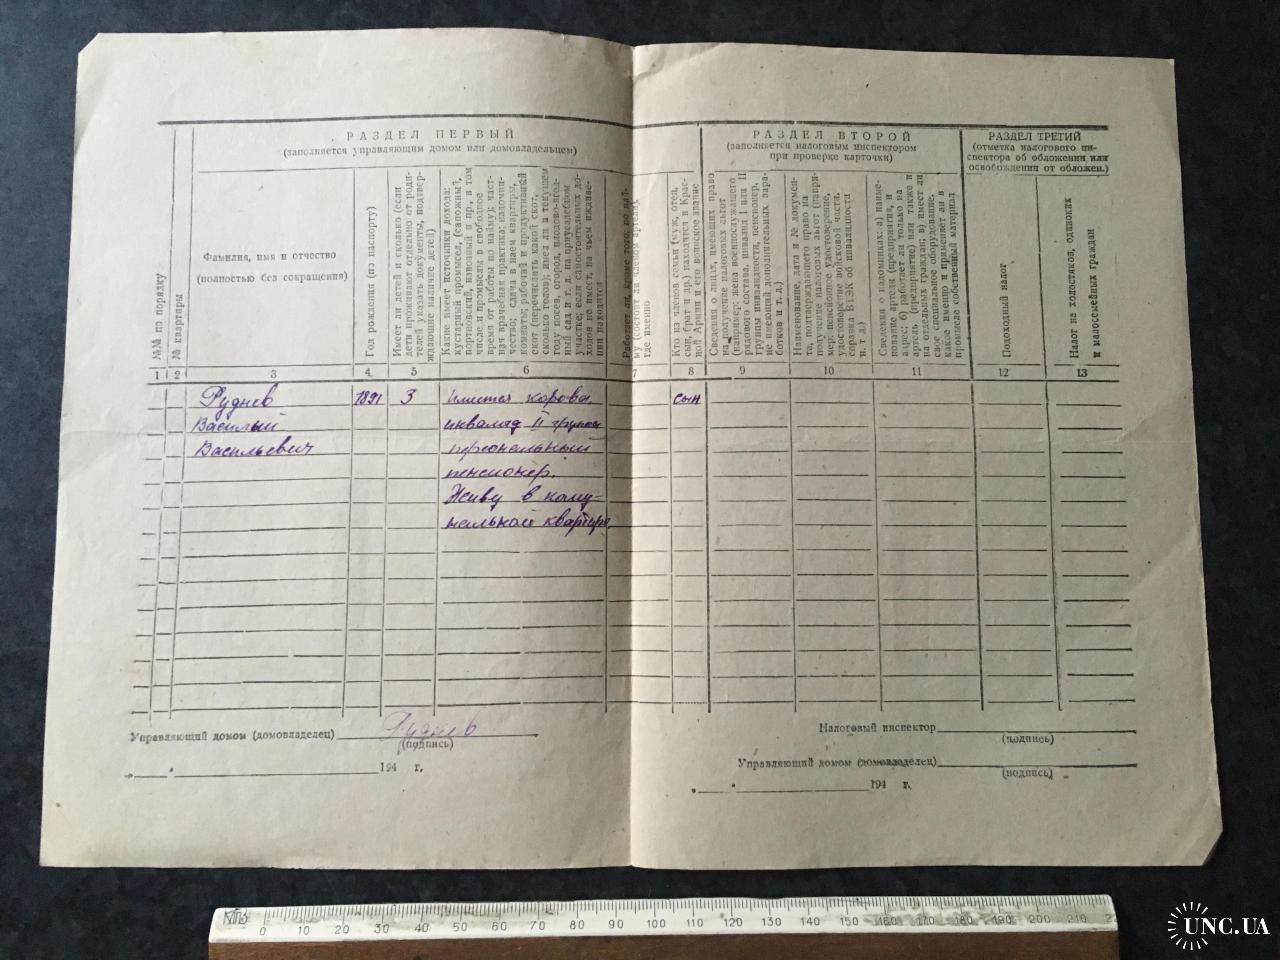 РАЗДЕЛ ПЕРВЫЙ
(заполняется управляющим домом или домовладельцем)
РАЗДЕЛ ВТОРОЙ
(заполняется налоговым инспектором
при проверке карточки)
РАЗДЕЛ ТРЕТИЙ
(отметка налогового ин-
спектора об обложении или
освобождении от обложен.)
№№ по порядку
№ квартиры
Фамилия, имя и отчество
(полностью без сокращения)
Год рождения (по паспорту)
Имеет ли детей и сколько (если
дети проживают отдельно от роди-
телей, указать документы, подтвер-
ждающие наличие детей)
Какие имеет источники дохода:
кустарный промысел, (сапожный,
портновский, извозный и пр., в том
числе и промыслы в свободное
время от работы по найму); част-
ная врачебная практика; надомни-
чество; сдача в наем квартиры,
комнаты; рабочий и продуктивный
скот (перечислить какой скот,
сколько голов); имел ли в текущем
году посев, огород, плодово-ягод-
ный сад и т. д. на приусадебном
участке; если самостоятельных до-
ходов не имеет, на чьем иждиве-
нии находится
Работает ли, кроме того, по най-
му (состоит ли членом артели),
где именно
Кто из членов семьи (муж, отец,
сын, брат и др.) находятся в Крас-
ной Армии и его воинское звание
Сведения о лицах, имеющих право
на получение налоговых льгот
(например: жена военнослужащего
рядового состава, инвалид I или II
группы инвалидности, пенсионер,
не имеющий дополнительных зара-
ботков и т. д.)
Наименование, дата и № докумен-
та, подтверждающего право на
получение налоговых льгот (напри-
мер: пенсионное удостоверение,
удостоверение войсковой части,
справка ВТЭК об инвалидности
и т. д.)
Сведения о надомниках: а) наиме-
нование артели (предприятия), и
адрес; б) работает ли только на
артель (предприятие) или также и
на отдельных граждан; в) имеет ли
свое специальное оборудование,
какое именно и применяет ли в
промысле собственный материал
Подоходный налог
Налог на холостяков, одиноких
и малосемейных граждан
1 2 3 4 5 6 7 8 9 10 11 12 13
Руднев 1891 3 Имеется корова сын
Василий инвалид II группы
Васильевич персональный
пенсионер.
Живу в кому-
нальной квартире
Управляющий домом (домовладелец) Руднев
(подпись)
194 г.
Налоговый инспектор
(подпись)
Управляющий домом (домовладелец)
(подпись)
194 г.
0 10 20 30 40 50 60 70 80 90 100 110 120 130 140 150 160 170 180 190 200 210
UNC.UA